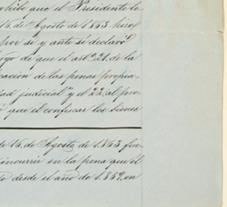 exhibe que el Presidente le
16 de Agosto de 1863 pero
por se y ante sí declaró
de que el artº 21 de la
cacion de las penas propia
dad judicial" y el 22, al pro
que el confiscar los bienes
de 16 de Agosto de 1863 fue
incurrir en la pena que el
desde el año de 1862, en